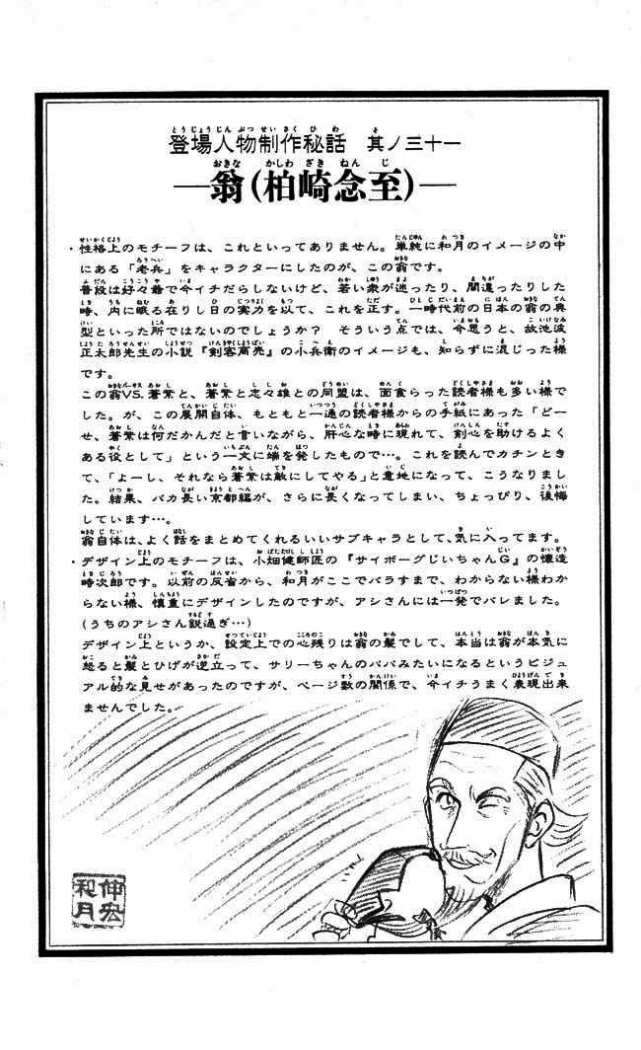 登場人物制作秘話 其ノ三十一
―翁(柏崎念至)―
・性格上のモチーフは、これといってありません。単純に和月のイメージの中
にある「老兵」をキャラクターにしたのが、この翁です。
普段は好々爺で今イチだらしないけど、若い衆が迷ったり、間違ったりした
時、内に眠る在りし日の実力を以て、これを正す。一時代前の日本の翁の典
型といった所ではないのでしょうか? そういう点では、今思うと、故池波
正太郎先生の小説『剣客商売』の小兵衛のイメージも、知らずに混じった様
です。
この翁VS.蒼紫と、蒼紫と志々雄との同盟は、面食らった読者様も多い様で
した。が、この展開自体、もともと一通の読者様からの手紙にあった「どー
せ、蒼紫は何だかんだと言いながら、肝心な時に現れて、剣心を助けるよく
ある役として」という一文に端を発したもので…。これを読んでカチンとき
て、「よーし、それなら蒼紫は敵にしてやる」と意地になって、こうなりまし
た。結果、バカ長い京都編が、さらに長くなってしまい、ちょっぴり、後悔
しています…。
翁自体は、よく話をまとめてくれるいいサブキャラとして、気に入ってます。
・デザイン上のモチーフは、小畑健師匠の『サイボーグじいちゃんG』の懐造
時次郎です。以前の反省から、和月がここでバラすまで、わからない様わか
らない様、慎重にデザインしたのですが、アシさんには一発でバレました。
(うちのアシさん鋭過ぎ…)
デザイン上というか、設定上での心残りは翁の髪でして、本当は翁が本気に
怒ると髪とひげが逆立って、サリーちゃんのパパみたいになるというビジュ
アル的な見せがあったのですが、ページ数の関係で、今イチうまく表現出来
ませんでした。
伸宏
和月